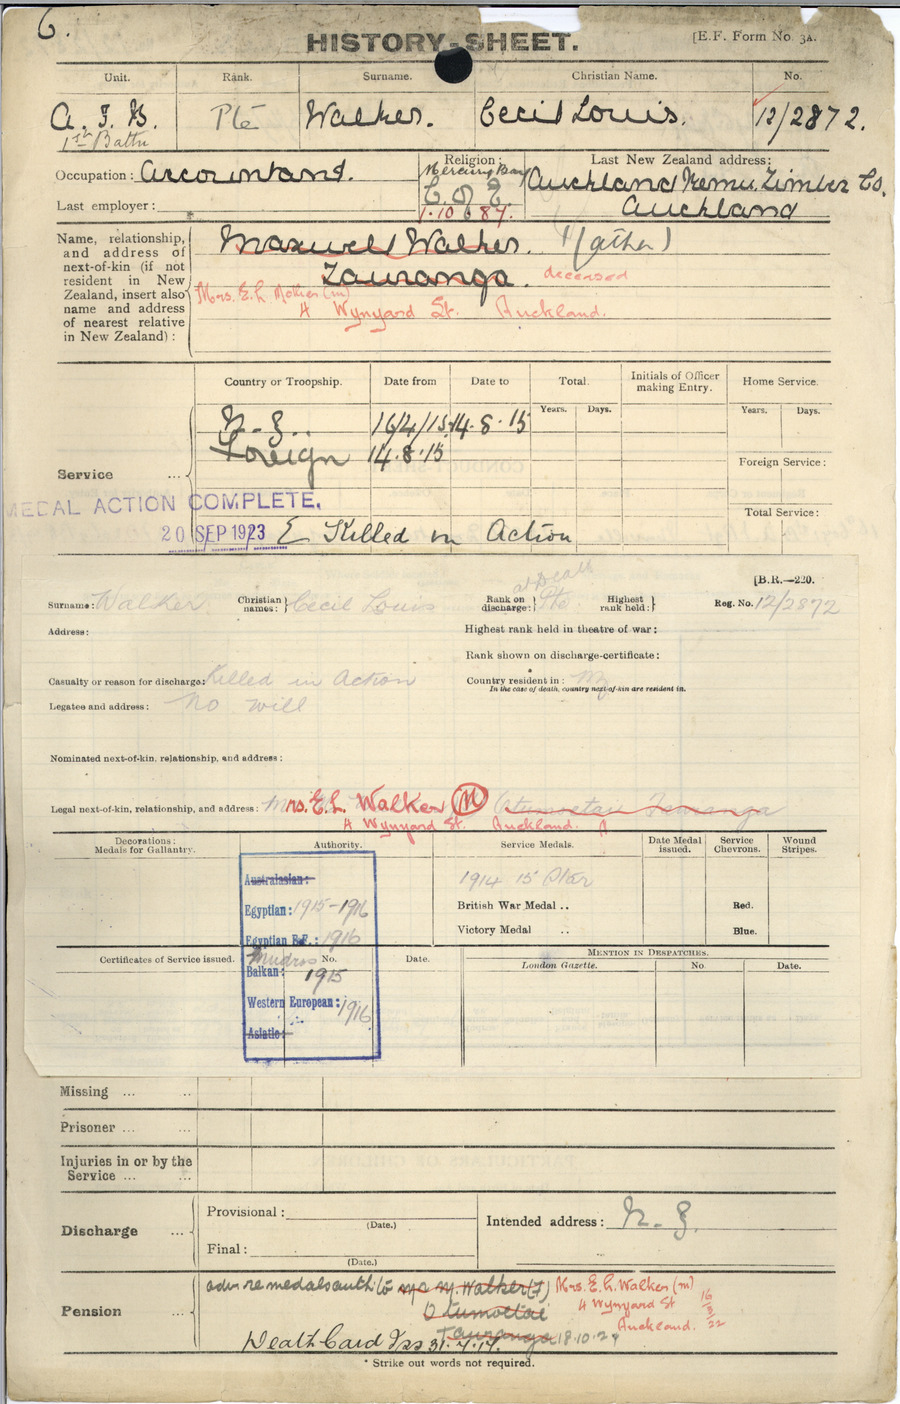 6.
HISTORY-SHEET.
[E.F. Form No. 3A.
Unit. Rank. Surname. Christian Name. No.
A. I. B. Pte Walker. Cecil Louis. 12/2872.
1st Battn
Occupation: Accountant.
Religion: Mercury Bay
C of E.
1.10.87.
Last New Zealand address:
Auckland Timber Co.
Auckland
Last employer:
Name, relationship, and address of next-of-kin (if not resident in New Zealand, insert also name and address of nearest relative in New Zealand):
Maxwell Walker. (father)
Tauranga. deceased
Mrs. E. L. Mother (m)
4 Wynyard St. Auckland.
Country or Troopship. Date from Date to Total. Initials of Officer making Entry. Home Service.
Years. Days. Years. Days.
N.Z. 16/4/15 14.8.15
Foreign 14.8.15
Foreign Service:
Service ...
Total Service:
MEDAL ACTION COMPLETE.
20 SEP 1923
Killed in Action
[B.R.—220.
at Death
Surname: Walker Christian names: Cecil Louis Rank on discharge: Pte Highest rank held: Reg. No. 12/2872
Address:
Highest rank held in theatre of war:
Rank shown on discharge-certificate:
Casualty or reason for discharge: Killed in Action
Country resident in: NZ
In the case of death, country next-of-kin are resident in.
Legatee and address: No will
Nominated next-of-kin, relationship, and address:
Legal next-of-kin, relationship, and address: Mrs. E. L. Walker (M) Otumoetai Tauranga
4 Wynyard St. Auckland.
Decorations: Medals for Gallantry. Authority. Service Medals. Date Medal issued. Service Chevrons. Wound Stripes.
Australasian:
Egyptian: 1915-1916
Egyptian E.F.: 1916
1914 15 Star
British War Medal ..
Victory Medal ..
Red.
Blue.
Certificates of Service issued. No. Date.
Mention in Despatches.
London Gazette. No. Date.
Mudros
Balkan: 1915
Western European: 1916
Asiatic:
Missing ... ...
Prisoner ... ...
Injuries in or by the Service ... ...
Discharge ...
Provisional:
(Date.)
Final:
(Date.)
Intended address: N.Z.
Pension ...
adv re medals auth to M. Walker (F) Mrs. E. L. Walker (m)
Otumoetai 4 Wynyard St
Tauranga Auckland. 16/8/22
18.10.21
Death Card Iss 31.7.17.
* Strike out words not required.